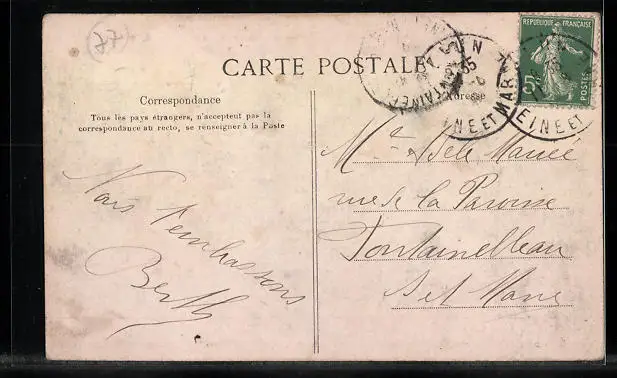 (77)
CARTE POSTALE
REPUBLIQUE FRANÇAISE
5c
POSTES
Correspondance
Tous les pays étrangers, n'acceptent pas la
correspondance au recto, se renseigner à la Poste
Adresse
MAR
EINE ET
INE ET
rue de la Paroisse
Fontainebleau
Set Marne
Vous t'embrassons
Berthy